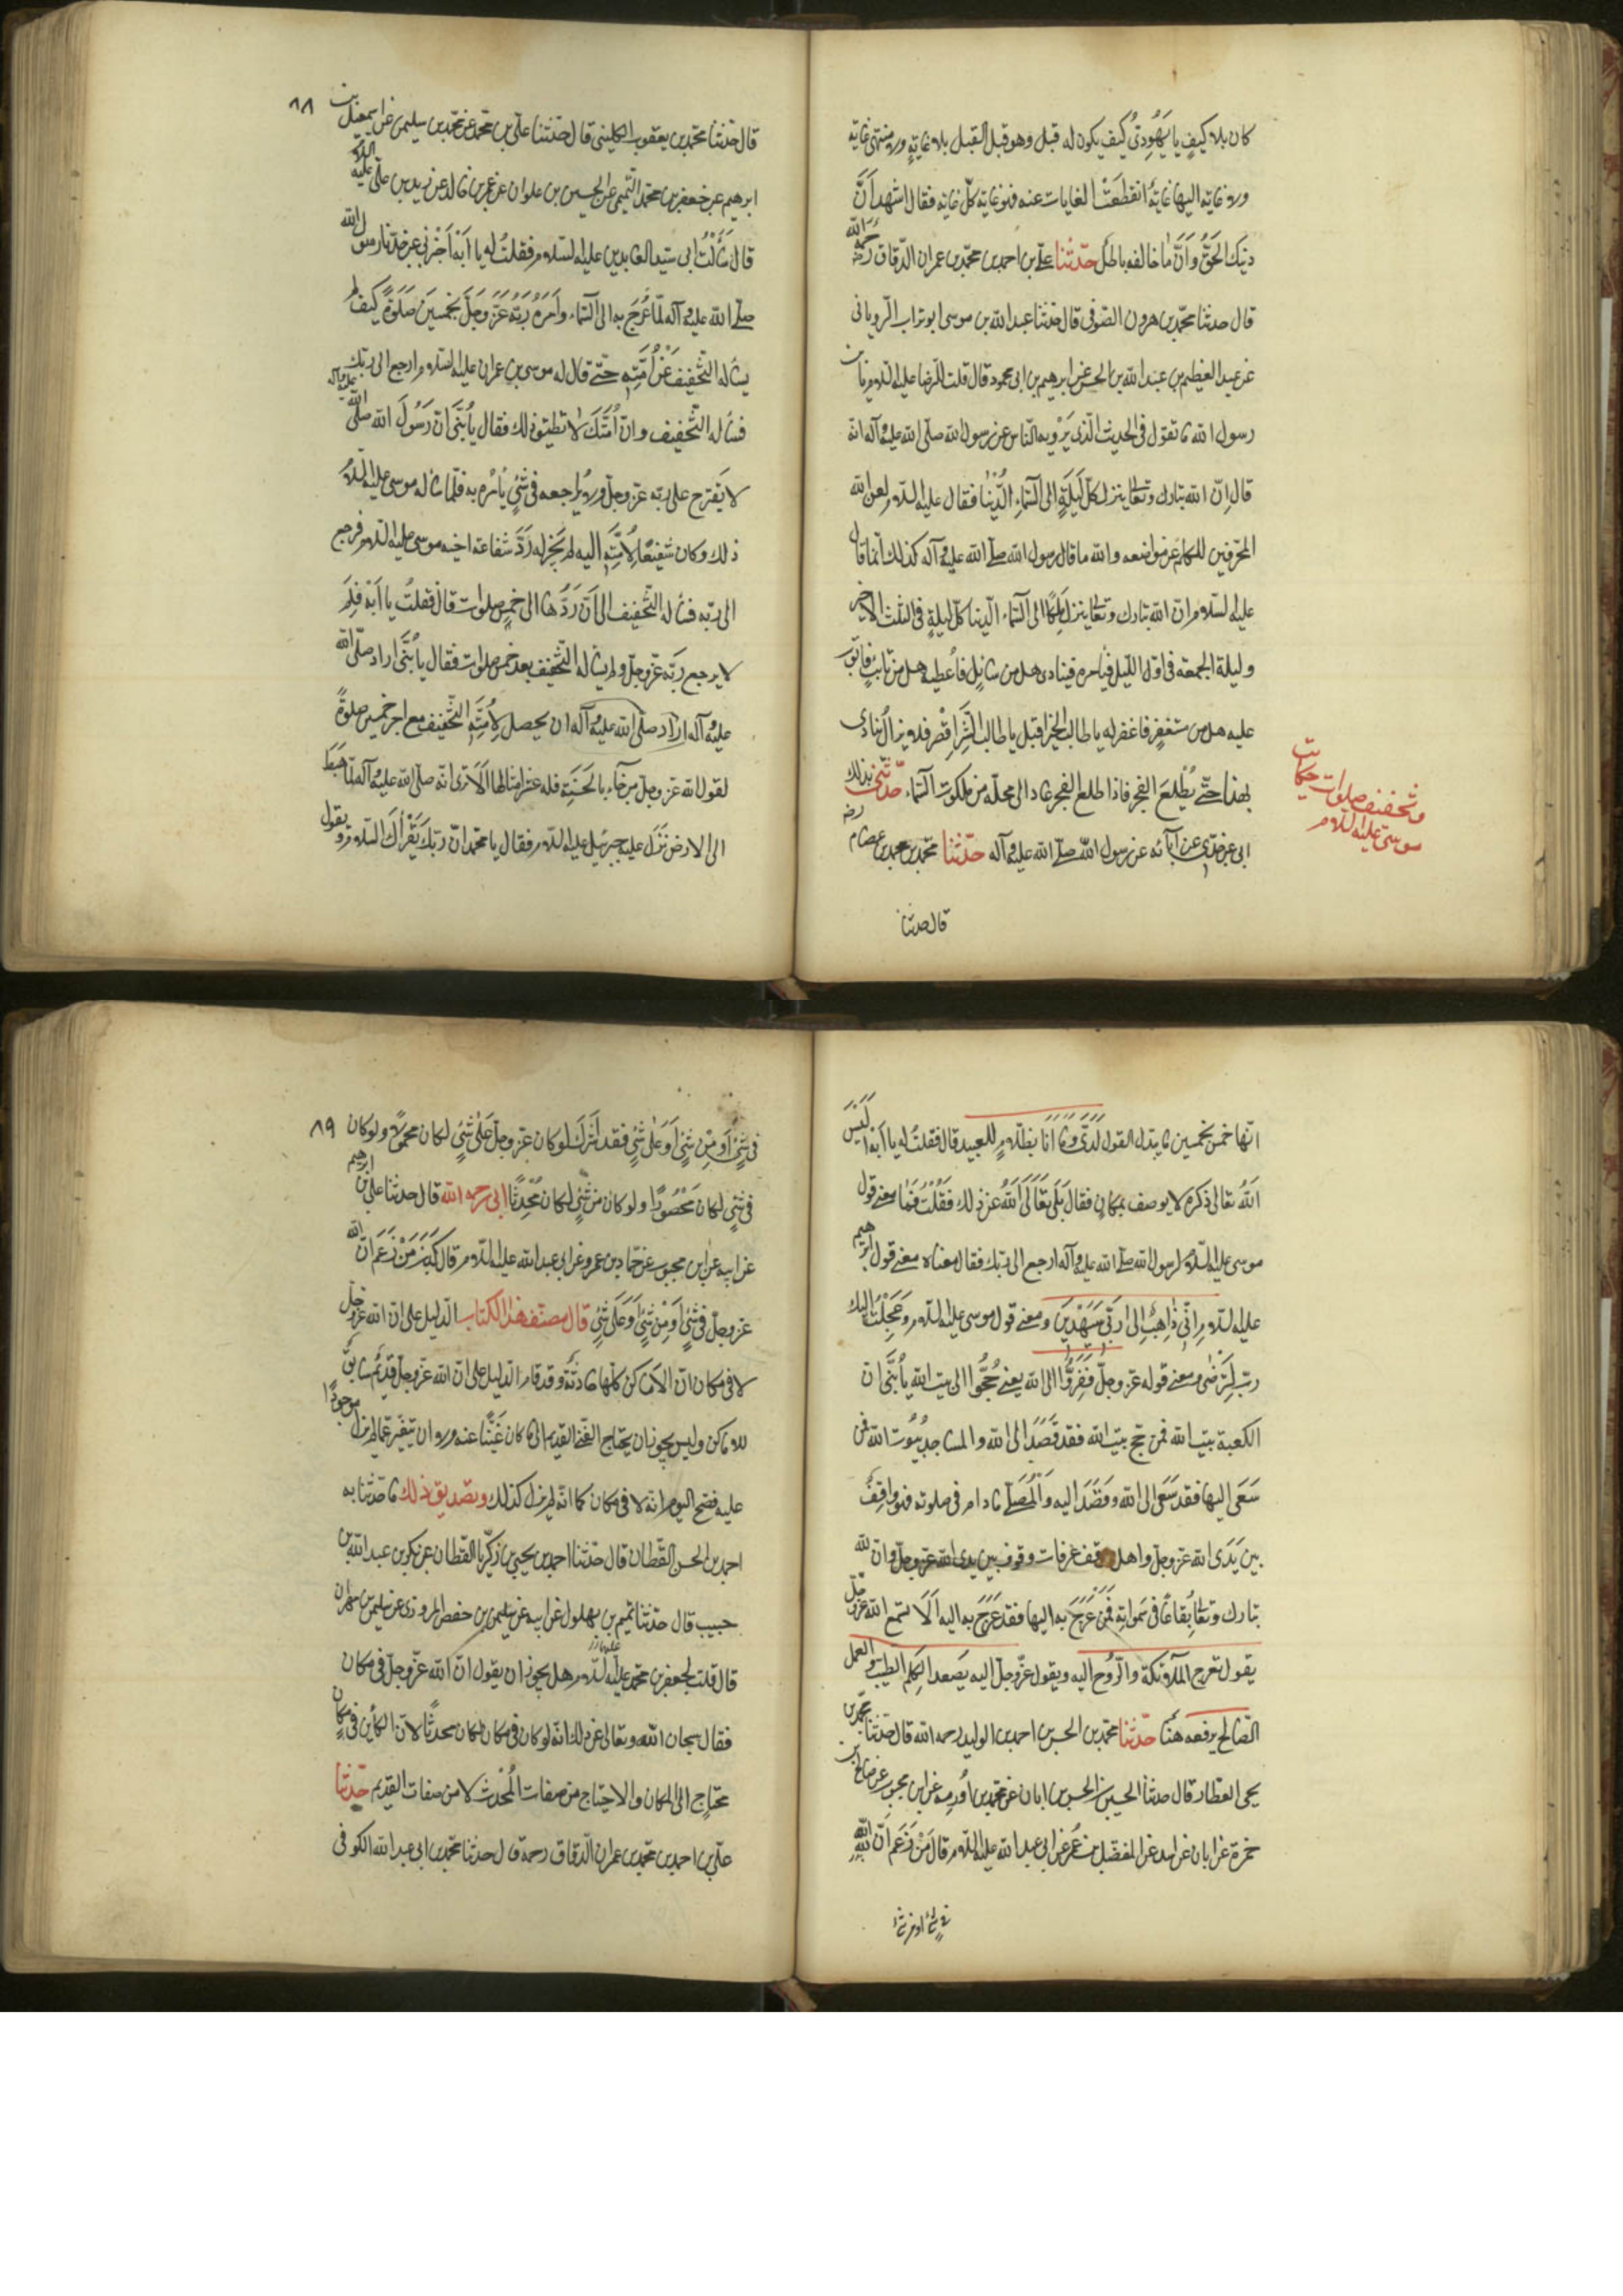 كان بلا كيف يا يَهُودىُّ كيف يكون له قبل وهو قبل القبل بلا غاية ولا منتهى غاية
ولا غاية اليها غايةٌ انقطعَتْ الغايات عنه فهو غاية كلّ غاية فقال اشهد اَنَّ
دينك الحقُّ وَاَنَّ ما خالفه باطل حدّثنا علي بن احمد بن محمّد بن عمران الدّقاق رحمه الله
قال حدثنا محمّد بن هرون الصّوفى قال حدثنا عبد الله بن موسى ابو تراب الرّويانى
عن عبد العظيم بن عبد الله بن الحسن عن ابرهيم بن ابى محمود قال قلت للرّضا عليه السّلام يا بن
رسول الله ما تقول فى الحديث الّذى يَرْويه النّاس عن رسول الله صلّى الله عليه وآله انّه
قال اِنّ الله تبارك وتعالى ينزل كلّ لَيلَةٍ الى السّماءِ الدُّنْيا فقال عليه السّلام لعن الله
المحرّفين للكلم عن مواضعه والله ما قال رسول الله صلّى الله عليه وآله كذلك انّما قال
عليه السّلام انّ الله تبارك وتعالى ينزل مَلَكًا الى السّماء الدّنيا كلّ ليلةٍ فى الثلث الاخير
وليلة الجمعة فى اوّل اللّيل فيأمره فينادى هل من سائلٍ فاُعطيه هل من تائبٍ فاتوب
عليه هل من مستغفرٍ فاغفر له يا طالب الخير اقبل يا طالب الشَّرّ اقْصر فلا يزال يُنادى
بهذا حتّى يَطْلعَ الفجر فاذا طلع الفجر عاد الى محلّه من ملكوت السّماء حدّثنى بذلك
ابى عن جدّى عن آبائه عن رسول الله صلّى الله عليه وآله حدّثنا محمّد بن محمد بن عصام رضه
قال حدثنا
وتخفيف صلوات حكايت
موسى عليه السلام
٨٨
قال حدّثنا محمّد بن يعقوب الكلينى قال حدّثنا علىّ بن محمّد عن محمّد بن سليمن عن اسمعيل بن
ابرهيم عن جعفر بن محمّد التّميمى عن الحسين بن علوان عن عمرو بن خالد عن زيد بن علىّ عليه السلام
قال سَأَلْتُ ابى سيّد العابدين عليه السّلام فقلتُ له يا اَبَهْ اَخْبِرنى عن جدّنا رسول الله
صلّى الله عليه وآله لمّا عُرِجَ به الى السّماء وَاَمَرَهُ رَبّه عَزَّ وَجَلَّ بخمسينَ صَلوةً كيف لم
يسأله التّخفيفَ عَنْ اُمَّتِهِ حتّى قال له موسى بن عمران عليه السّلام ارجع الى ربّك
فسأله التّخفيف وانّ اُمَّتَكَ لا تطيق ذلك فقال يا بُنَىَّ انّ رَسُولَ الله صلّى الله عليه وآله
لا يَقْترح على ربّه عزّ وجلّ ولا يُراجعه فى شئٍ يأمُره به فلمّا سأله موسى عليه السّلام
ذلك وكان شفيعًا لاُمَّتِهِ اليه لم يَجُز له رَدَّ شفاعة اخيه موسى عليه السّلام فرجع
الى ربّه فسأله التّخفيف الى اَنْ رَدَّها الى خمس صلوات قال فقلتُ يا اَبَهْ فلِمَ
لا يرجع ربّه عزّ وجلّ ولم يسأله التّخفيف بعد خمس صلوات فقال يا بُنَىَّ اراد صلّى الله
عليه وآله اراد صلّى الله عليه وآله ان يحصل لاُمّتِهِ التّخفيف مع اجر خمسين صلوةً
لقول الله عزّ وجلّ من جآء بالحَسَنَةِ فله عشر امثالها اَلَا ترى انّه صلّى الله عليه وآله لمّا هَبَطَ
الى الارض نَزَلَ عليه جبرئيل عليه السّلام فقال يا محمّد انّ ربّكَ يَقْرَأُكَ السّلام ويقول
انّها خمس بخمسين ما يبدّل القول لَدَىَّ وَمَا اَنَا بظلّامٍ للعبيد قال فقلتُ له يا اَبَهْ اَلَيْسَ
اَللهُ تعالى ذكره لا يوصف بمكان فقال بَلَى تَعَالَى اَللهُ عن ذلك فَقُلْتُ فما معنى قول
موسى عليه السّلام لرسول الله صلّى الله عليه وآله ارجع الى ربّك فقال معناه معنى قول ابرهيم
عليه السّلام اِنِّى ذَاهِبٌ اِلى رَبّى سَيَهْدِين ومعنى قول موسى عليه السّلام وعَجِلْتُ اليك
ربّ لِتَرْضى ومعنى قوله عزّ وجلّ فَفِرُّوا الى الله يعنى حُجُّوا الى بيت الله يا بُنَىَّ انّ
الكعبة بيت الله فمن حجّ بيت الله فقد قَصَدَ الى الله والمساجد بُيُوت الله فمن
سَعَى اليها فقد سَعَى الى الله وقَصَدَ اليه وَالمُصَلّى ما دام فى صلوته فهو واقِفٌ
بين يَدَى الله عزّ وجلّ واهل موقف عرفات وقوف بين يدى الله عزّ وجلّ وانّ لله
تبارك وتعالى بِقاعًا فى سَمواتِهِ فَمَن عُرِجَ به اليها فقد عُرِجَ به اليه اَلَا تسمع الله عزّ وجلّ
يقول تعرج الملآئكة والرّوح اليه ويقول عزّ وجلّ اليه يَصعد الكلم الطيّب والعمل
الصّالح يرفعه حدّثنا محمّد بن الحسن بن احمد بن الوليد رحمه الله قال حدّثنا محمّد بن
يحيى العطار قال حدثنا الحسين بن الحسن بن ابان عن محمّد بن اُورمه عن ابن محبوب عن صالح بن
حمزة عن ابان عن اسد عن المفضّل بن عُمر عن ابى عبد الله عليه السّلام قال مَنْ زَعَمَ انّ الله
فى شئ او من شئ
٨٩
فى شئٍ اَوْ مِنْ شئٍ اَوْ عَلى شئٍ فقد اَشْرَكَ لو كان عزّ وجلّ عَلى شئٍ لكان محمولًا ولو كان
فى شئٍ لكان مَحْصُورًا ولو كان من شئٍ لكان مُحْدَثًا ابى رحمه الله قال حدثنا على بن ابرهيم
عن ابيه عن ابن محبوب عن حمّاد بن عمرو عن ابى عبد الله عليه السّلام قال كَذَبَ مَنْ زَعَمَ انّ الله
عزّ وجلّ فى شئٍ اَوْ مِنْ شئٍ اَوْ عَلَى شئٍ قال مصنّف هذا الكتاب الدّليل على انّ الله عزّ وجلّ
لا فى مكان انّ الاَماكن كلّها حادثةٌ وقد قام الدّليل على انّ الله عزّ وجلّ قديمٌ سابقٌ
للاماكن وليس يجوز ان يحتاج الغنىّ القديم الى ما كان غَنيًّا عنه ولا ان يتغيّر عمّا لم يزل موجودًا
عليه فصحّ اليوم انّه لا فى مكان كما انّه لم يزل كذلك وتصديق ذلك ما حدّثنا به
احمد بن الحسن القّطان قال حدّثنا احمد بن يحيى بن زكرّيا القطّان عن بكر بن عبد الله بن
حبيب قال حدّثنا تميم بن بهلول عن ابيه عن سليمن بن حفص المروزى عن سليمن بن مهران
قال قلت لجعفر بن محمّد عليه السّلام هل يجوز ان يقول انّ الله عزّ وجلّ فى مكان
فقال سبحان الله وتعالى عن ذلك انّه لو كان فى مكان لكان محدثًا لانّ الكائن فى مكان
محتاج الى المكان والاحتياج من صفات المُحْدَث لا من صفات القديم حدّثنا
علىّ بن احمد بن محمّد بن عمران الدّقاق رحمه قال حدثنا محمّد بن ابى عبد الله الكوفى